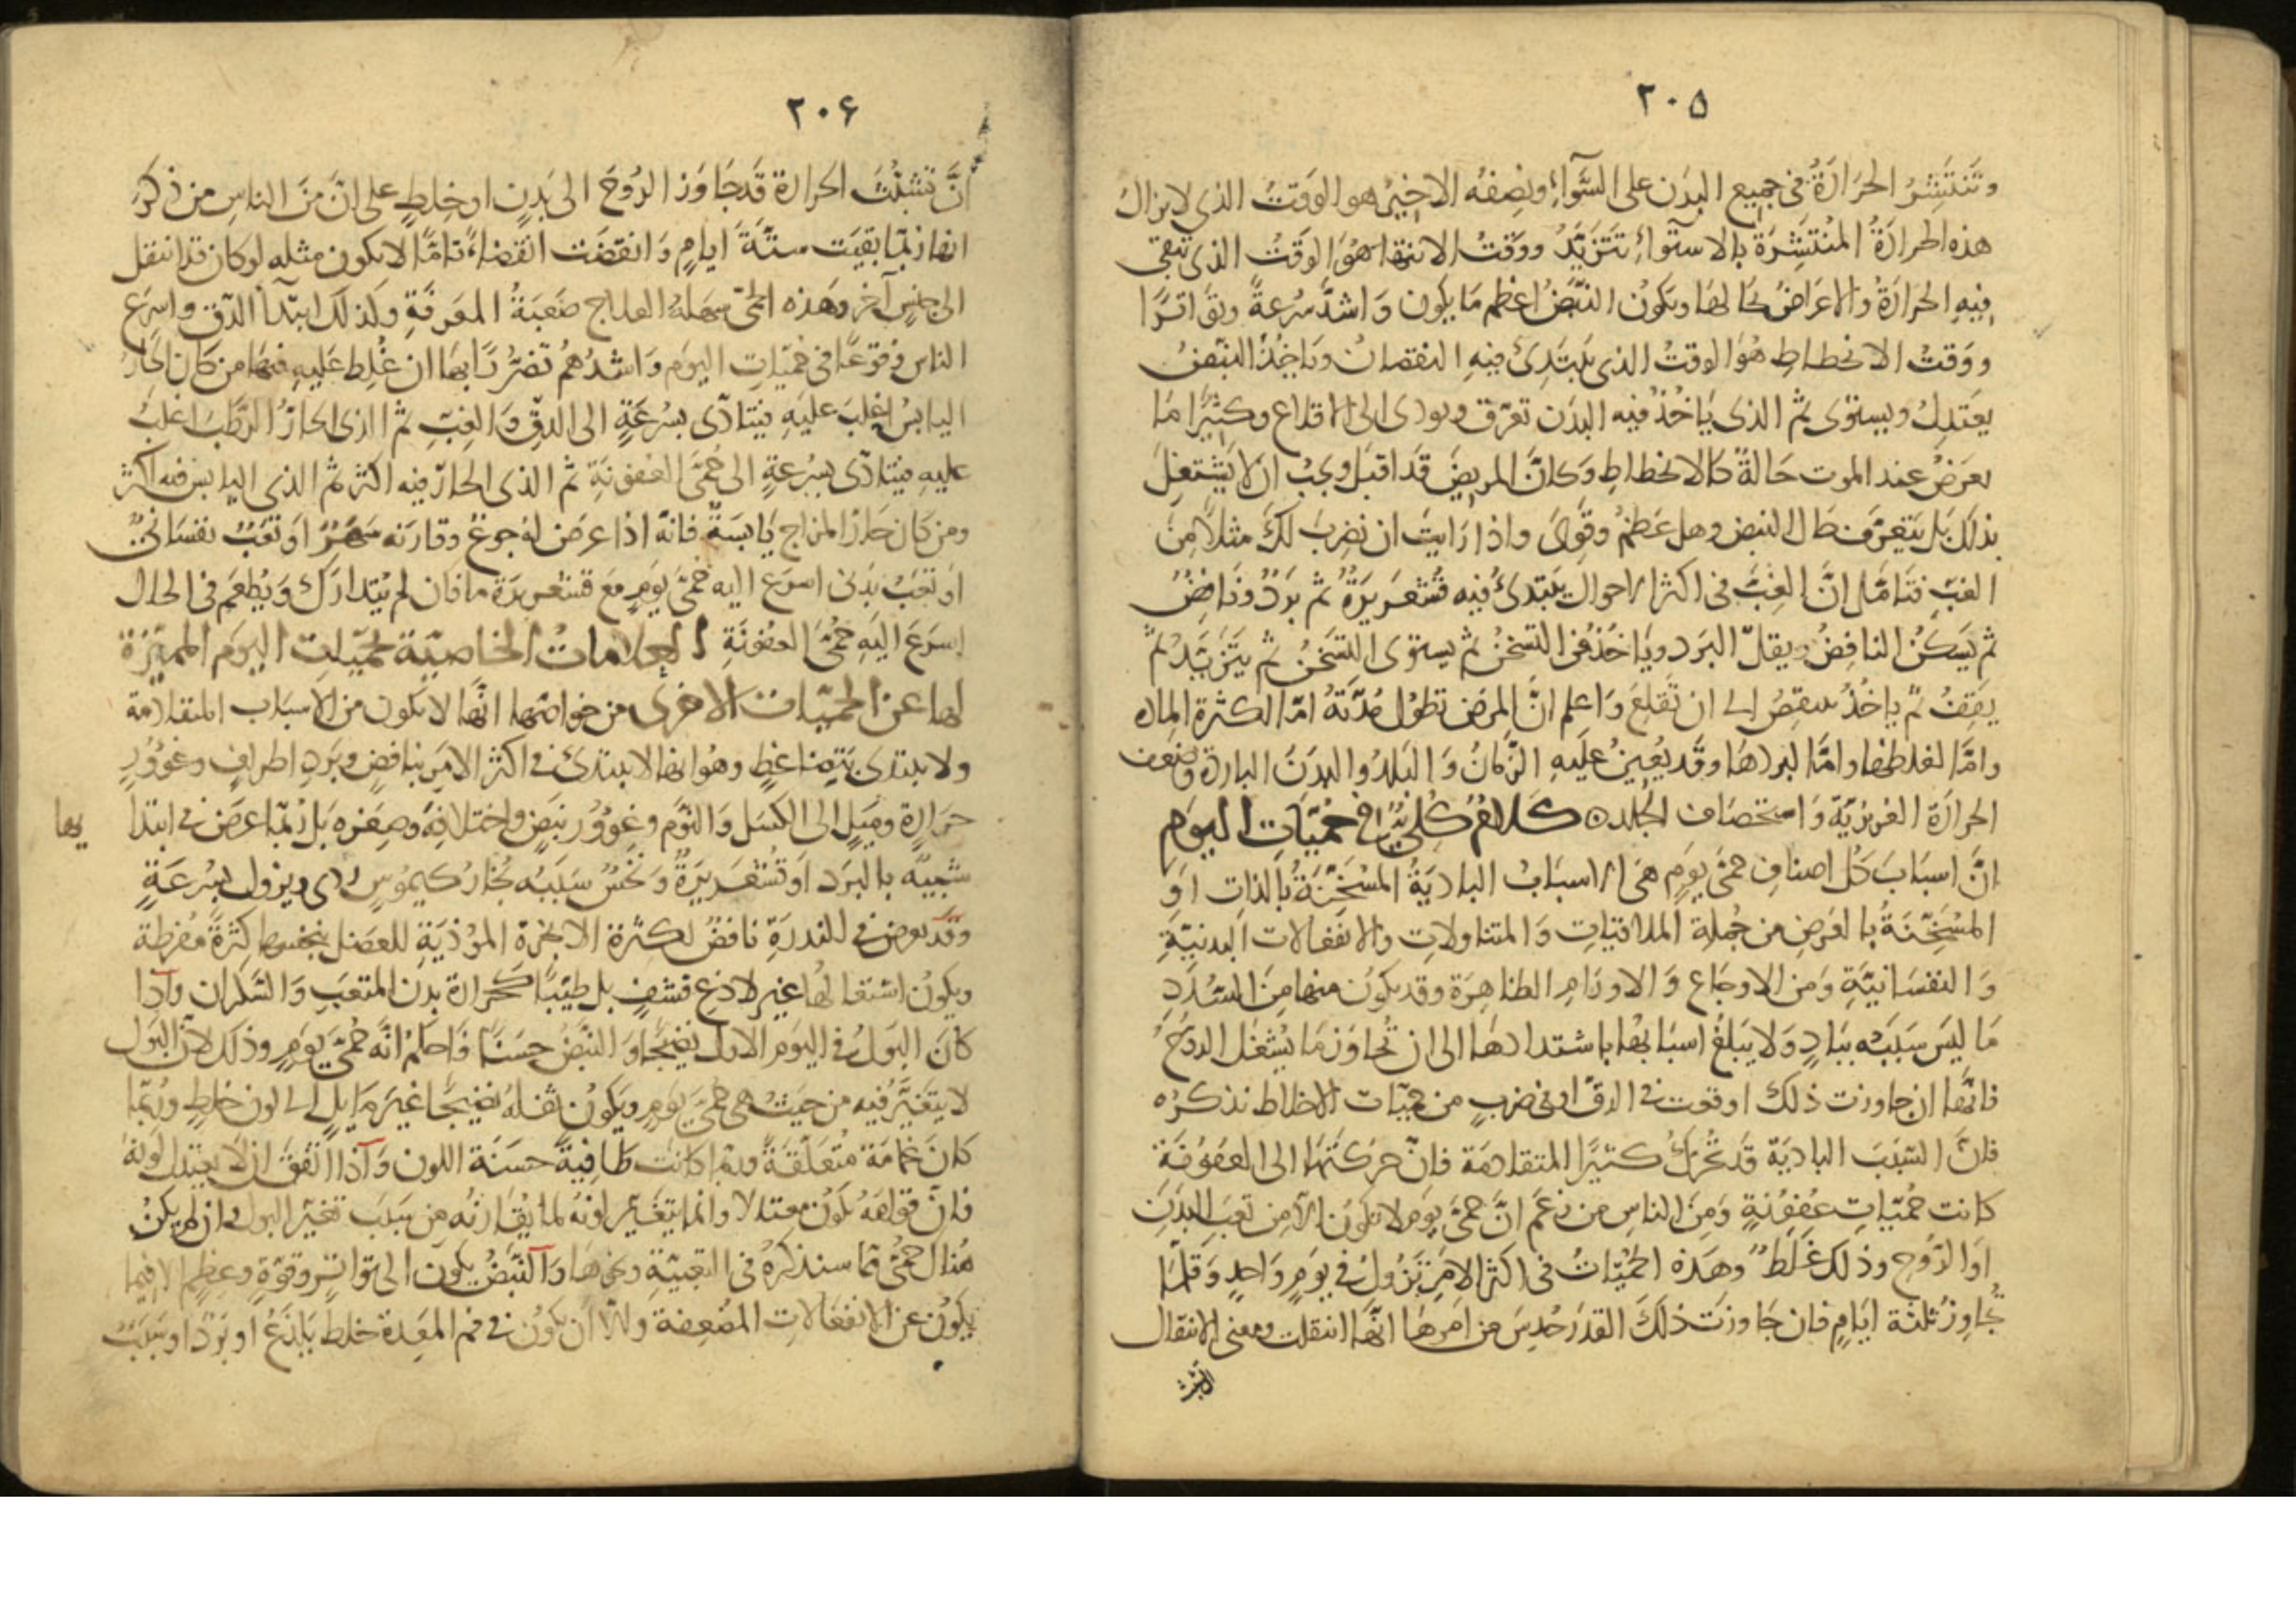 ٢٠٥
وتنتشر الحرارة في جميع البدن على السواء ونصفه الاخير هو الوقت الذي لا يزال
هذه الحرارة المنتشرة بالاستواء تتزيد ووقت الانتها هو الوقت الذي تبقى
فيه الحرارة والاعراض بحالها ويكون النبض اعظم ما يكون واشد سرعة وتواترا
ووقت الانحطاط هو الوقت الذي يبتدئ فيه النقصان وياخذ النبض
يعتدل ويستوى ثم الذي ياخذ فيه البدن تعرق ويودى الى الاقلاع وكثيرا ما
يعرض عند الموت حالة كالانحطاط وكان المريض قد اقبل ويجب ان لا يشتغل
بذلك بل يتعرف حال النبض وهل عظم وقوى واذا رايت ان نضرب لك مثلا من
الغب فتامل ان الغب في اكثر الاحوال يبتدئ فيه قشعريرة ثم برد ونافض
ثم يسكن النافض ويقل البرد وياخذ في التسخن ثم يستوى التسخن ثم يتزيد ثم
يقف ثم ياخذ ينقص الى ان تقلع واعلم ان المرض تطول مدته اما لكثرة الماده
واما لغلظها واما لبردها وقد يعين عليه الزمان والبلد والبدن البارد وضعف
الحرارة الغريزية واستخصاف الجلد كلام كلي في حميات اليوم
ان اسباب كل اصناف حمى يوم هي الاسباب البادية المسخنة بالذات او
المسخنة بالعرض من جملة الملاقيات والمتناولات والانفعالات البدنية
والنفسانية ومن الاوجاع والاورام الظاهرة وقد يكون منها من السدد
ما ليس سببه بباد ولا يبلغ اسبابها باشتدادها الى ان تجاوز ما يشغل الروح
فانها ان جاوزت ذلك اوقعت في الدق او في ضرب من حميات الاخلاط نذكره
فان السبب البادية قد تحرك كثيرا المتقادمة فان حركتها الى العفونة
كانت حميات عفونة ومن الناس من زعم ان حمى يوم لا تكون الا من تعب البدن
او الروح وذلك غلط وهذه الحميات في اكثر الامر تزول في يوم واحد وقلما
تجاوز ثلثة ايام فان جاوزت ذلك القدر حدس من امرها انها انتقلت ومعنى الانتقال
٢٠۶
ان تشبث الحرارة قد جاوز الروح الى بدن او خلط على ان من الناس من ذكر
انها ربما بقيت ستة ايام وانقضت انقضاء تاما لا يكون مثله لو كان قد انتقل
الى جنس آخر وهذه الحمى سهلة العلاج صعبة المعرفة وكذلك ابتدا الدق واسرع
الناس وقوعا في حميات اليوم واشدهم تضررا بها ان غلط عليه فيها من كان الحار
اليابس اغلب عليه فيتادى بسرعة الى الدق والغب ثم الذي الحار الرطب اغلب
عليه فيتادى بسرعة الى حمى العفونة ثم الذي الحار فيه اكثر ثم الذي اليابس فيه اكثر
ومن كان حار المزاج يابسة فانه اذا عرض له جوع وقارنه سهر او تعب نفساني
او تعب بدني اسرع اليه حمى يوم مع قشعريرة ما فان لم يتدارك ويطعم في الحال
اسرع اليه حمى العفونة العلامات الخاصية لحميات اليوم المميزة
لها عن الحميات الاخرى من خواصها انها لا تكون من الاسباب المتقادمة
ولا يبتدى بتضاغط وهو انها لا يبتدئ في اكثر الامر بنافض وبرد اطراف وغوور
حرارة وميل الى الكسل والنوم وغوور نبض واختلافه وصغره بل ربما عرض في ابتدا
يها
شبيه بالبرد او قشعريرة ونخس سببه بخار كيموس ردى ويزول بسرعة
وقد يعرض في الندرة نافض لكثرة الابخرة الموذية للعضل بنخسها كثرة مفرطة
ويكون اشتعالها غير لاذع قشف بل طيبا كحرارة بدن المتعب والسكران واذا
كان البول في اليوم الاول نضيجا والنبض حسنا فاحكم انه حمى يوم وذلك لان البول
لا يتغير فيه من حيث هي حمى يوم ويكون ثفله نضيجا غير مايل الى لون خلط وربما
كان غمامة متعلقة وربما كانت طافية حسنة اللون واذا اتفق ان لا يعتدل لونه
فان قوامه يكون معتدلا وانما يتغير لونه لما يقارنه من سبب تغير البول وان لم يكن
هناك حمى مما سنذكره في التعبية ونحوها والنبض يكون الى تواتر وقوة وعظم الا فيما
يكون عن الانفعالات المضعفة والا ان يكون في فم المعدة خلط يلذع او برد او سبب